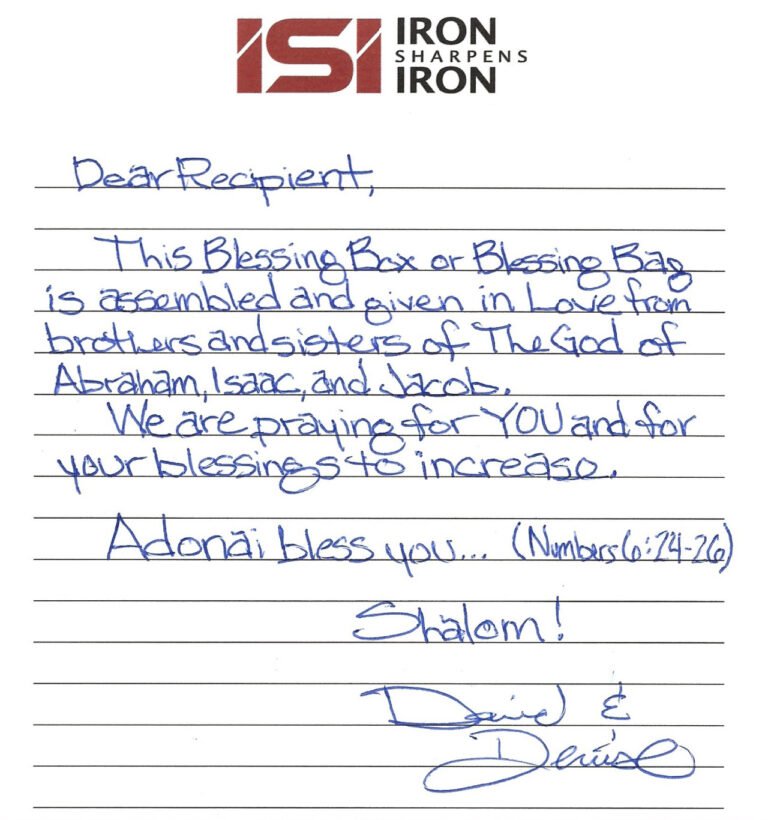 ISI IRON
SHARPENS
IRON
Dear Recipient,
This Blessing Box or Blessing Bag
is assembled and given in Love from
brothers and sisters of The God of
Abraham, Isaac, and Jacob.
We are praying for YOU and for
your blessings to increase.
Adonai bless you... (Numbers 6:24-26)
Shalom!
David &
Denise